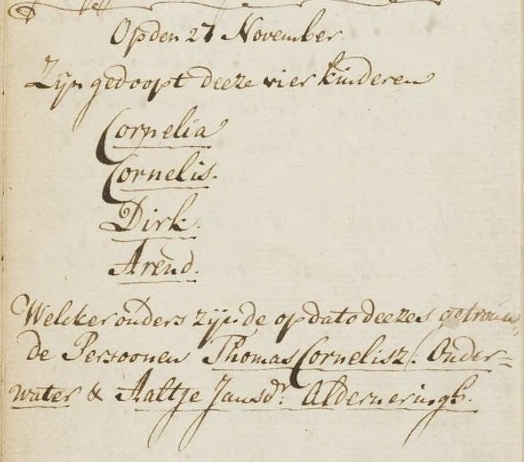 Op den 27 November
Zijn gedoopt deeze vier kinderen
Cornelia
Cornelis.
Dirk.
Arend.
Welcker ouders zijn de op dato deezes getrouw,
de Persoonen Thomas Cornelisz: Onder=
water & Aaltje Jansdr: Alderneringh.